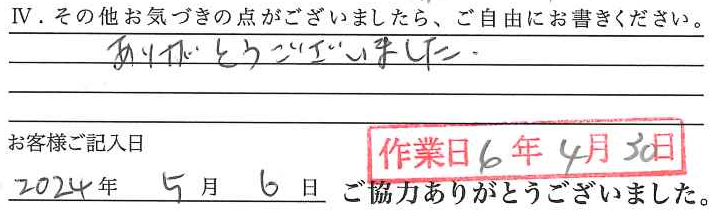 Ⅳ．その他お気づきの点がございましたら、ご自由にお書きください。
ありがとうございました.
お客様ご記入日
作業日6年4月30日
2024年5月6日 ご協力ありがとうございました。